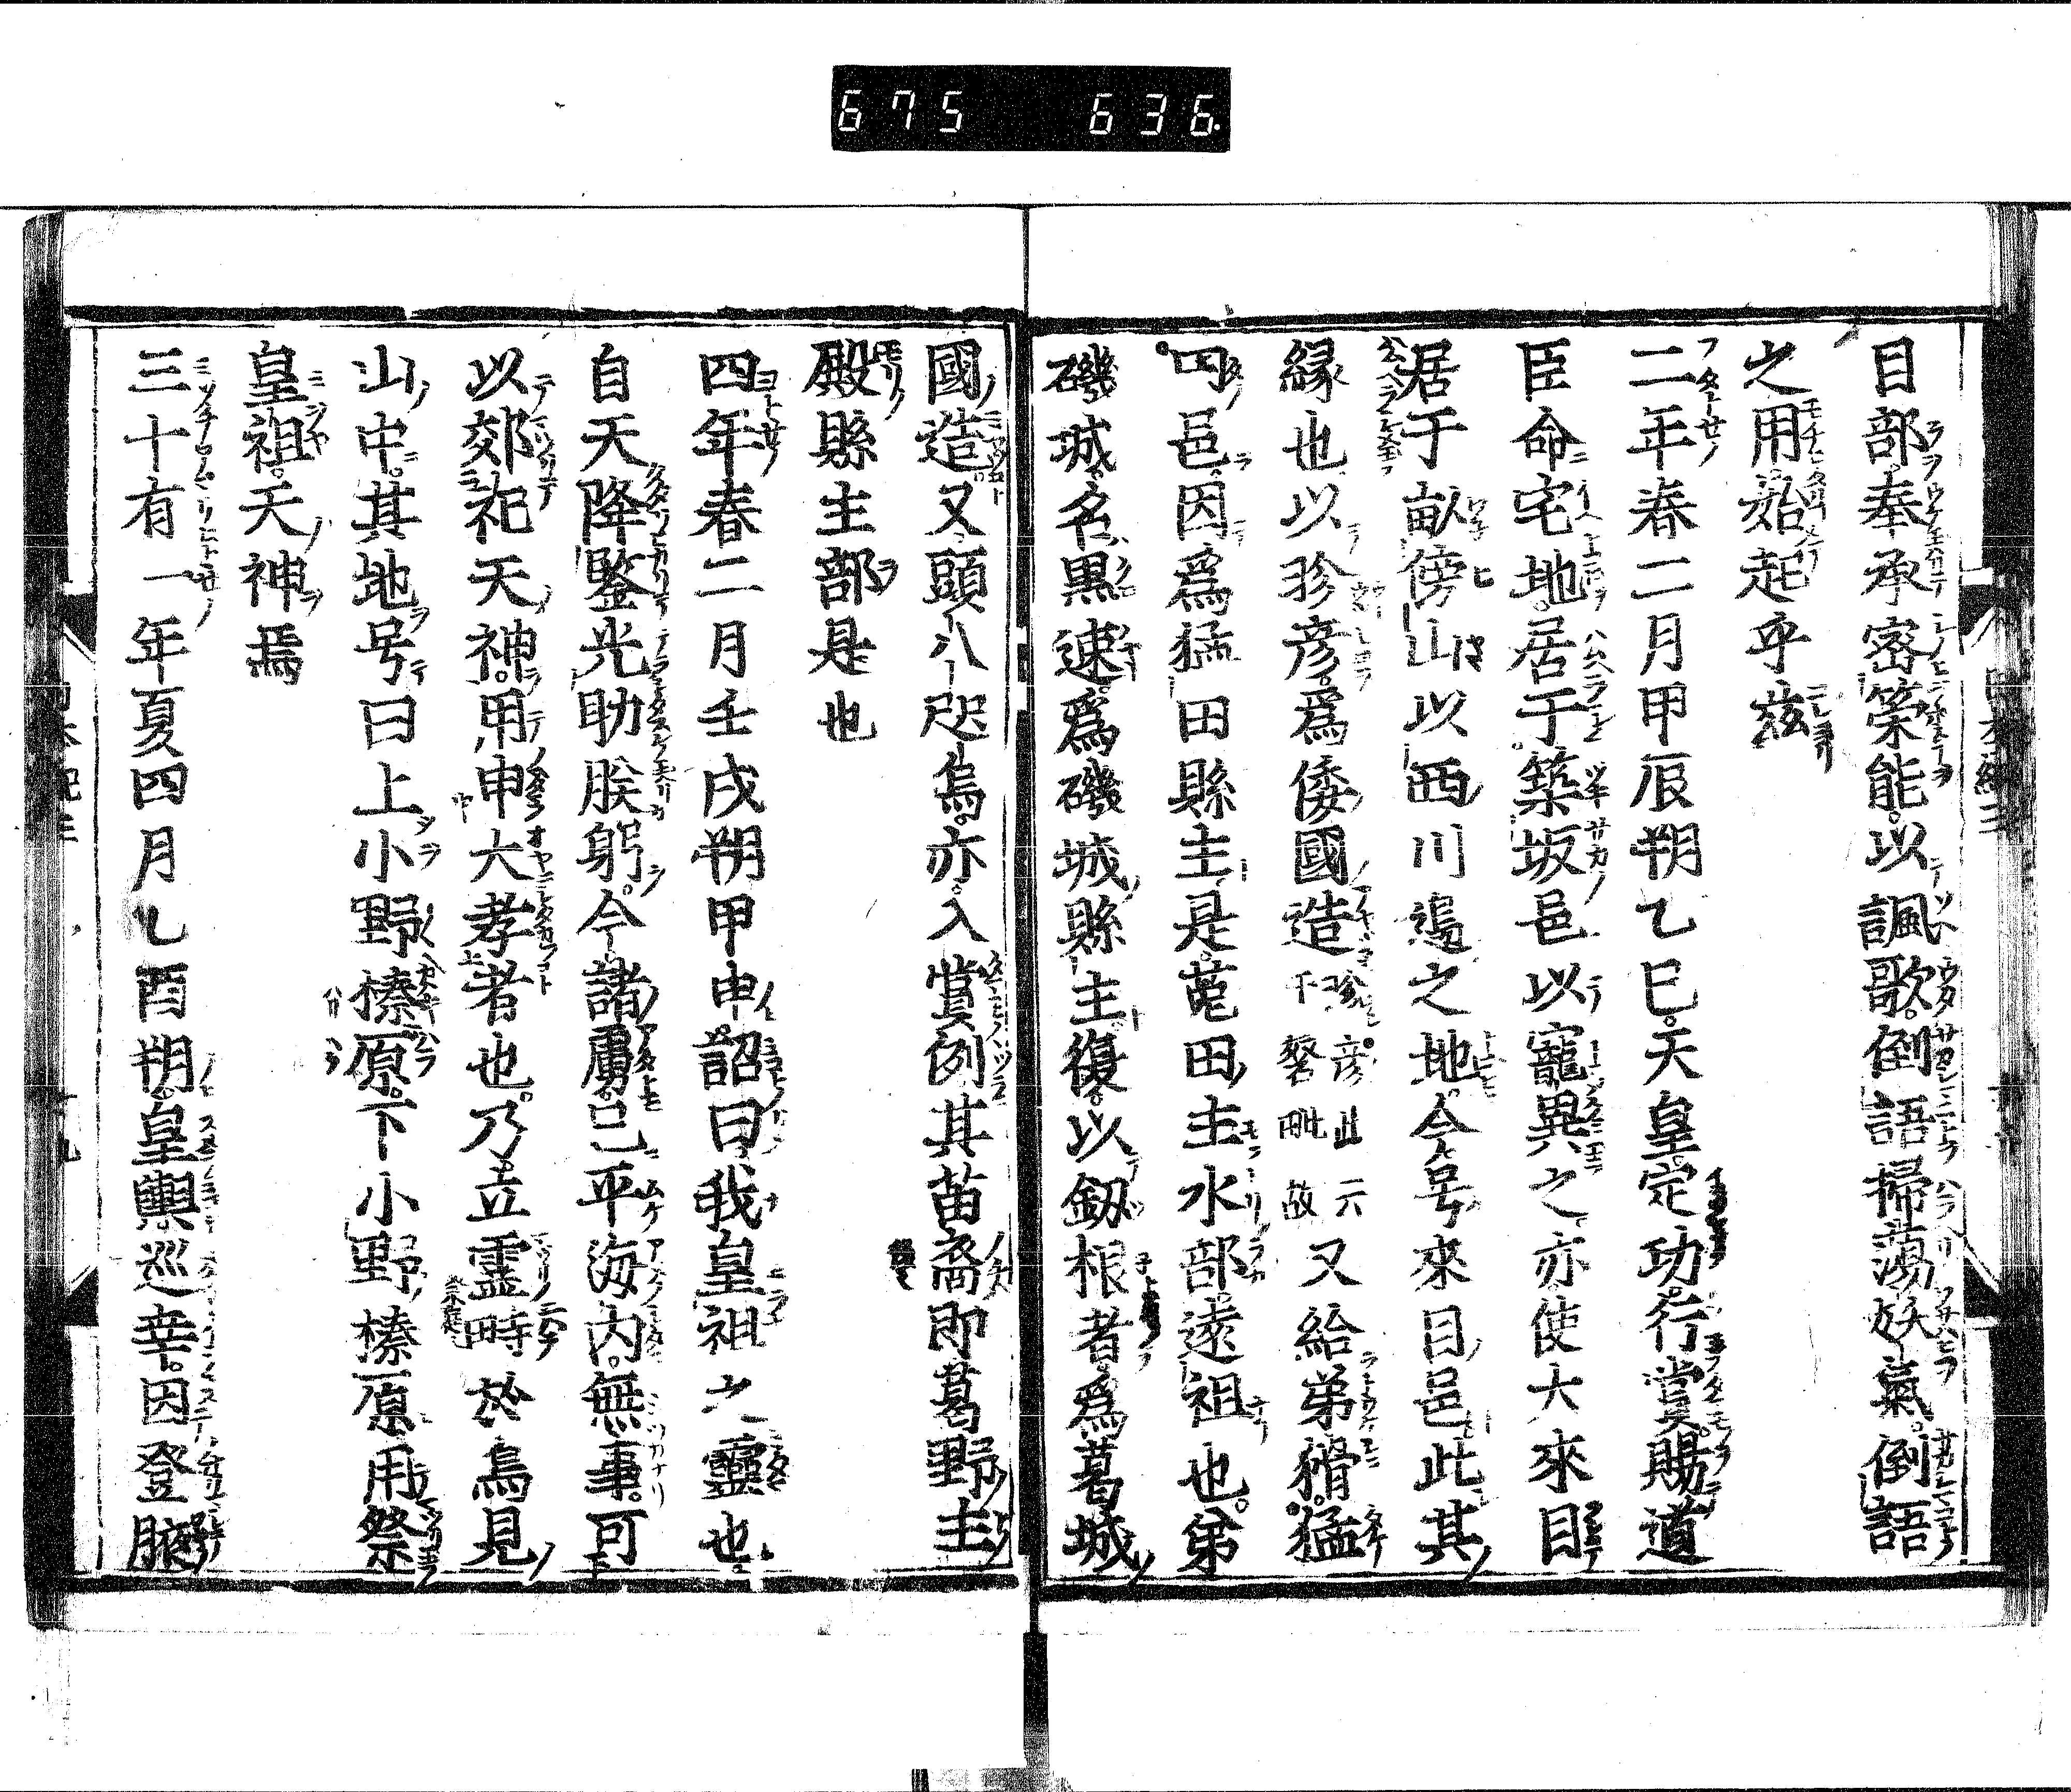 675 636.
目部奉承密策能以諷歌倒語掃蕩妖氣倒語
之用始起乎茲
二年春二月甲辰朔乙巳天皇定功行賞賜道
臣命宅地居于築坂邑以寵異之亦使大來目
居于畝傍山以西川邊之地今号來目邑此其
縁也以珍彦爲倭國造珍彦此云于砮毗故又給弟猾猛
田邑因爲猛田縣主是菟田主水部遠祖也弟
磯城名黒速爲磯城縣主復以釼根者爲葛城
國造又頭八咫烏亦入賞例其苗裔即葛野主
殿縣主部是也
四年春二月壬戌朔甲申詔曰我皇祖之靈也
自天降鑒光助朕躬今諸虜已平海内無事可
以郊祀天神用申大孝者也乃立霊畤於鳥見
山中其地号曰上小野榛原下小野榛原用祭
皇祖天神焉
三十有一年夏四月乙酉朔皇輿巡幸因登腋